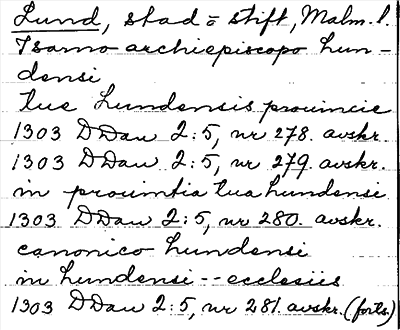 Lund, stad o stift, Malm. l.
Isarno archiepiscopo lun-
densi
tue Lundensis prouincie
1303 DDan 2:5, nr 278. avskr.
1303 DDan 2:5, nr 279. avskr.
in prouintia tua lundensi
1303 DDan 2:5, nr 280. avskr.
canonico lundensi
in lundensi -- ecclesiis
1303 DDan 2:5, nr 281. avskr. (forts.)